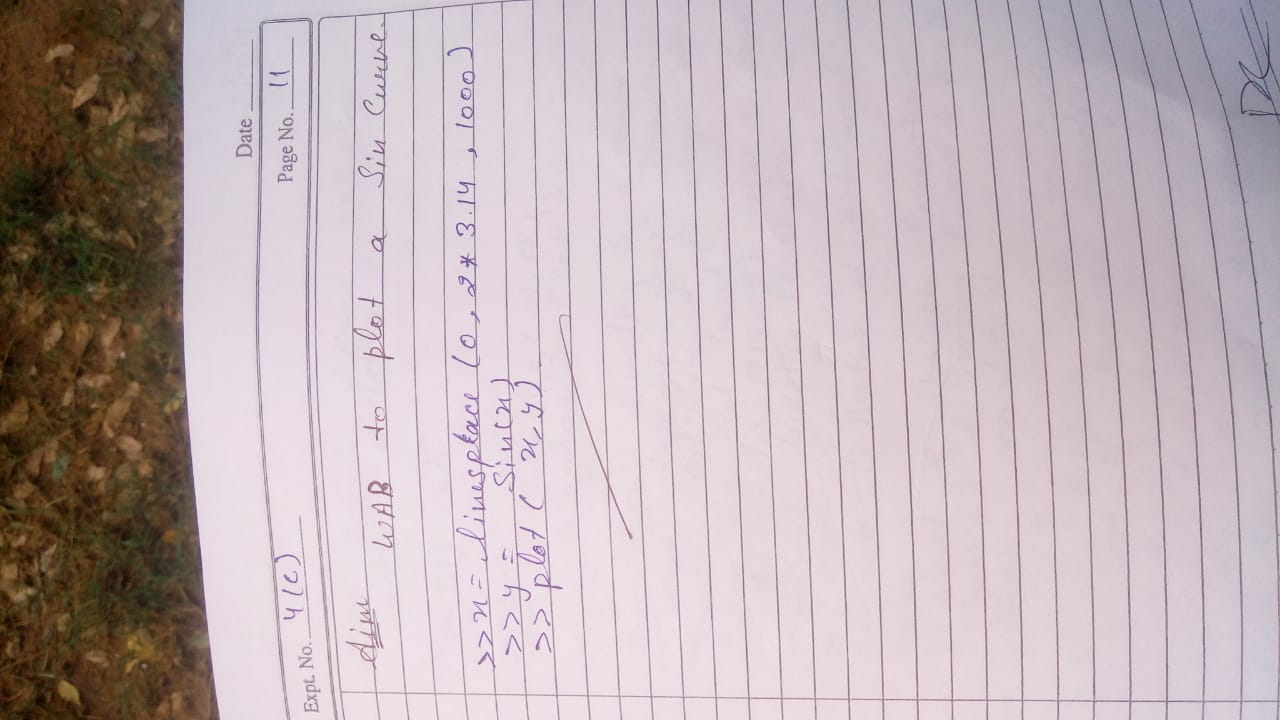 Date
Expt. No. 4(c)
Page No. 11
Aim WAB to plot a Sin Curve.
>> x = linesplace (0, 2*3.14, 1000)
>> y = Sin(x)
>> plot ( x, y)